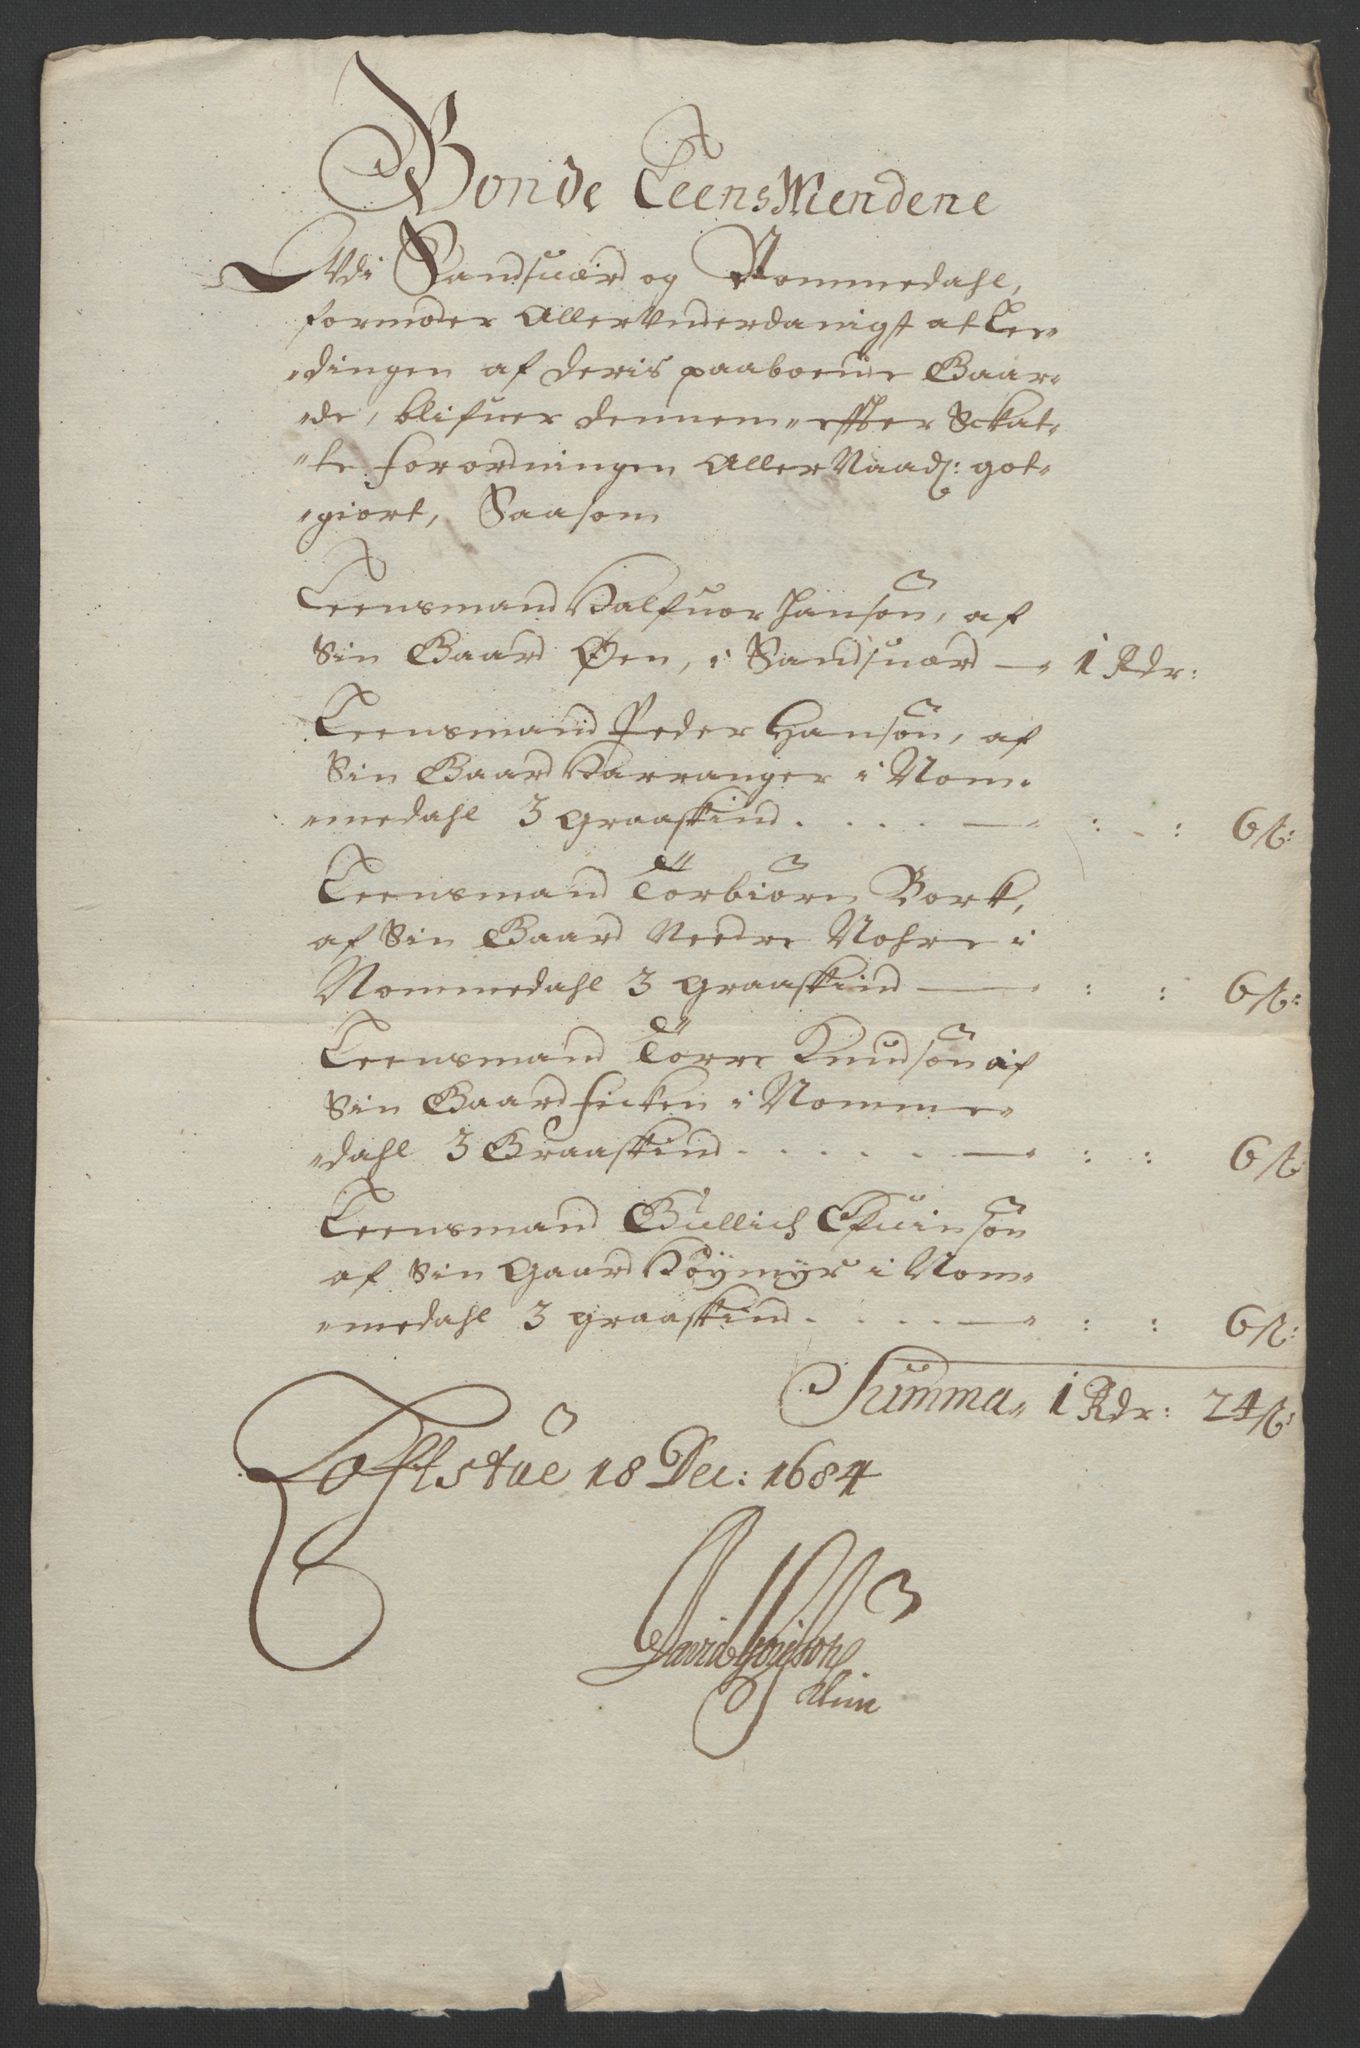 Bonde LeensMendene
Udi Sandsuærd og Nommedahl,
formoder AllerUnderdanigst at Lee„
„dingen af deris paaboende Gaar„
„de, blifuer dennem effter Sckat„
„te forordningen AllerNaad: got„
„giort, Saasom
Leensmand Halfuor Hansøn, af
Sin Gaard Øen, i Sandsuærd — „ 1 Rdr:
Leensmand Peder Hansøn, af
Sin Gaard Karranger i Nom„
„medahl 3 graaskind . . . . — „ : : 6 ß:
Leensmand Torbiørn Bork,
af Sin Gaard Needre Nohre i
Nommedahl 3 graaskind — „ : : 6 ß:
Leensmand Torre Knudsøn af
Sin Gaard ficken i Nomme„
„dahl 3 Graaskind . . . . . — „ : : 6 ß
Leensmand Gullich Efuinsøn
af Sin Gaard Høymyr i Nom„
„medahl 3 graaskind . . . . — „ : : 6 ß:
Summa„ 1 Rdr: 24 ß:
Loftstue 18 Dec: 1684
David
Klim